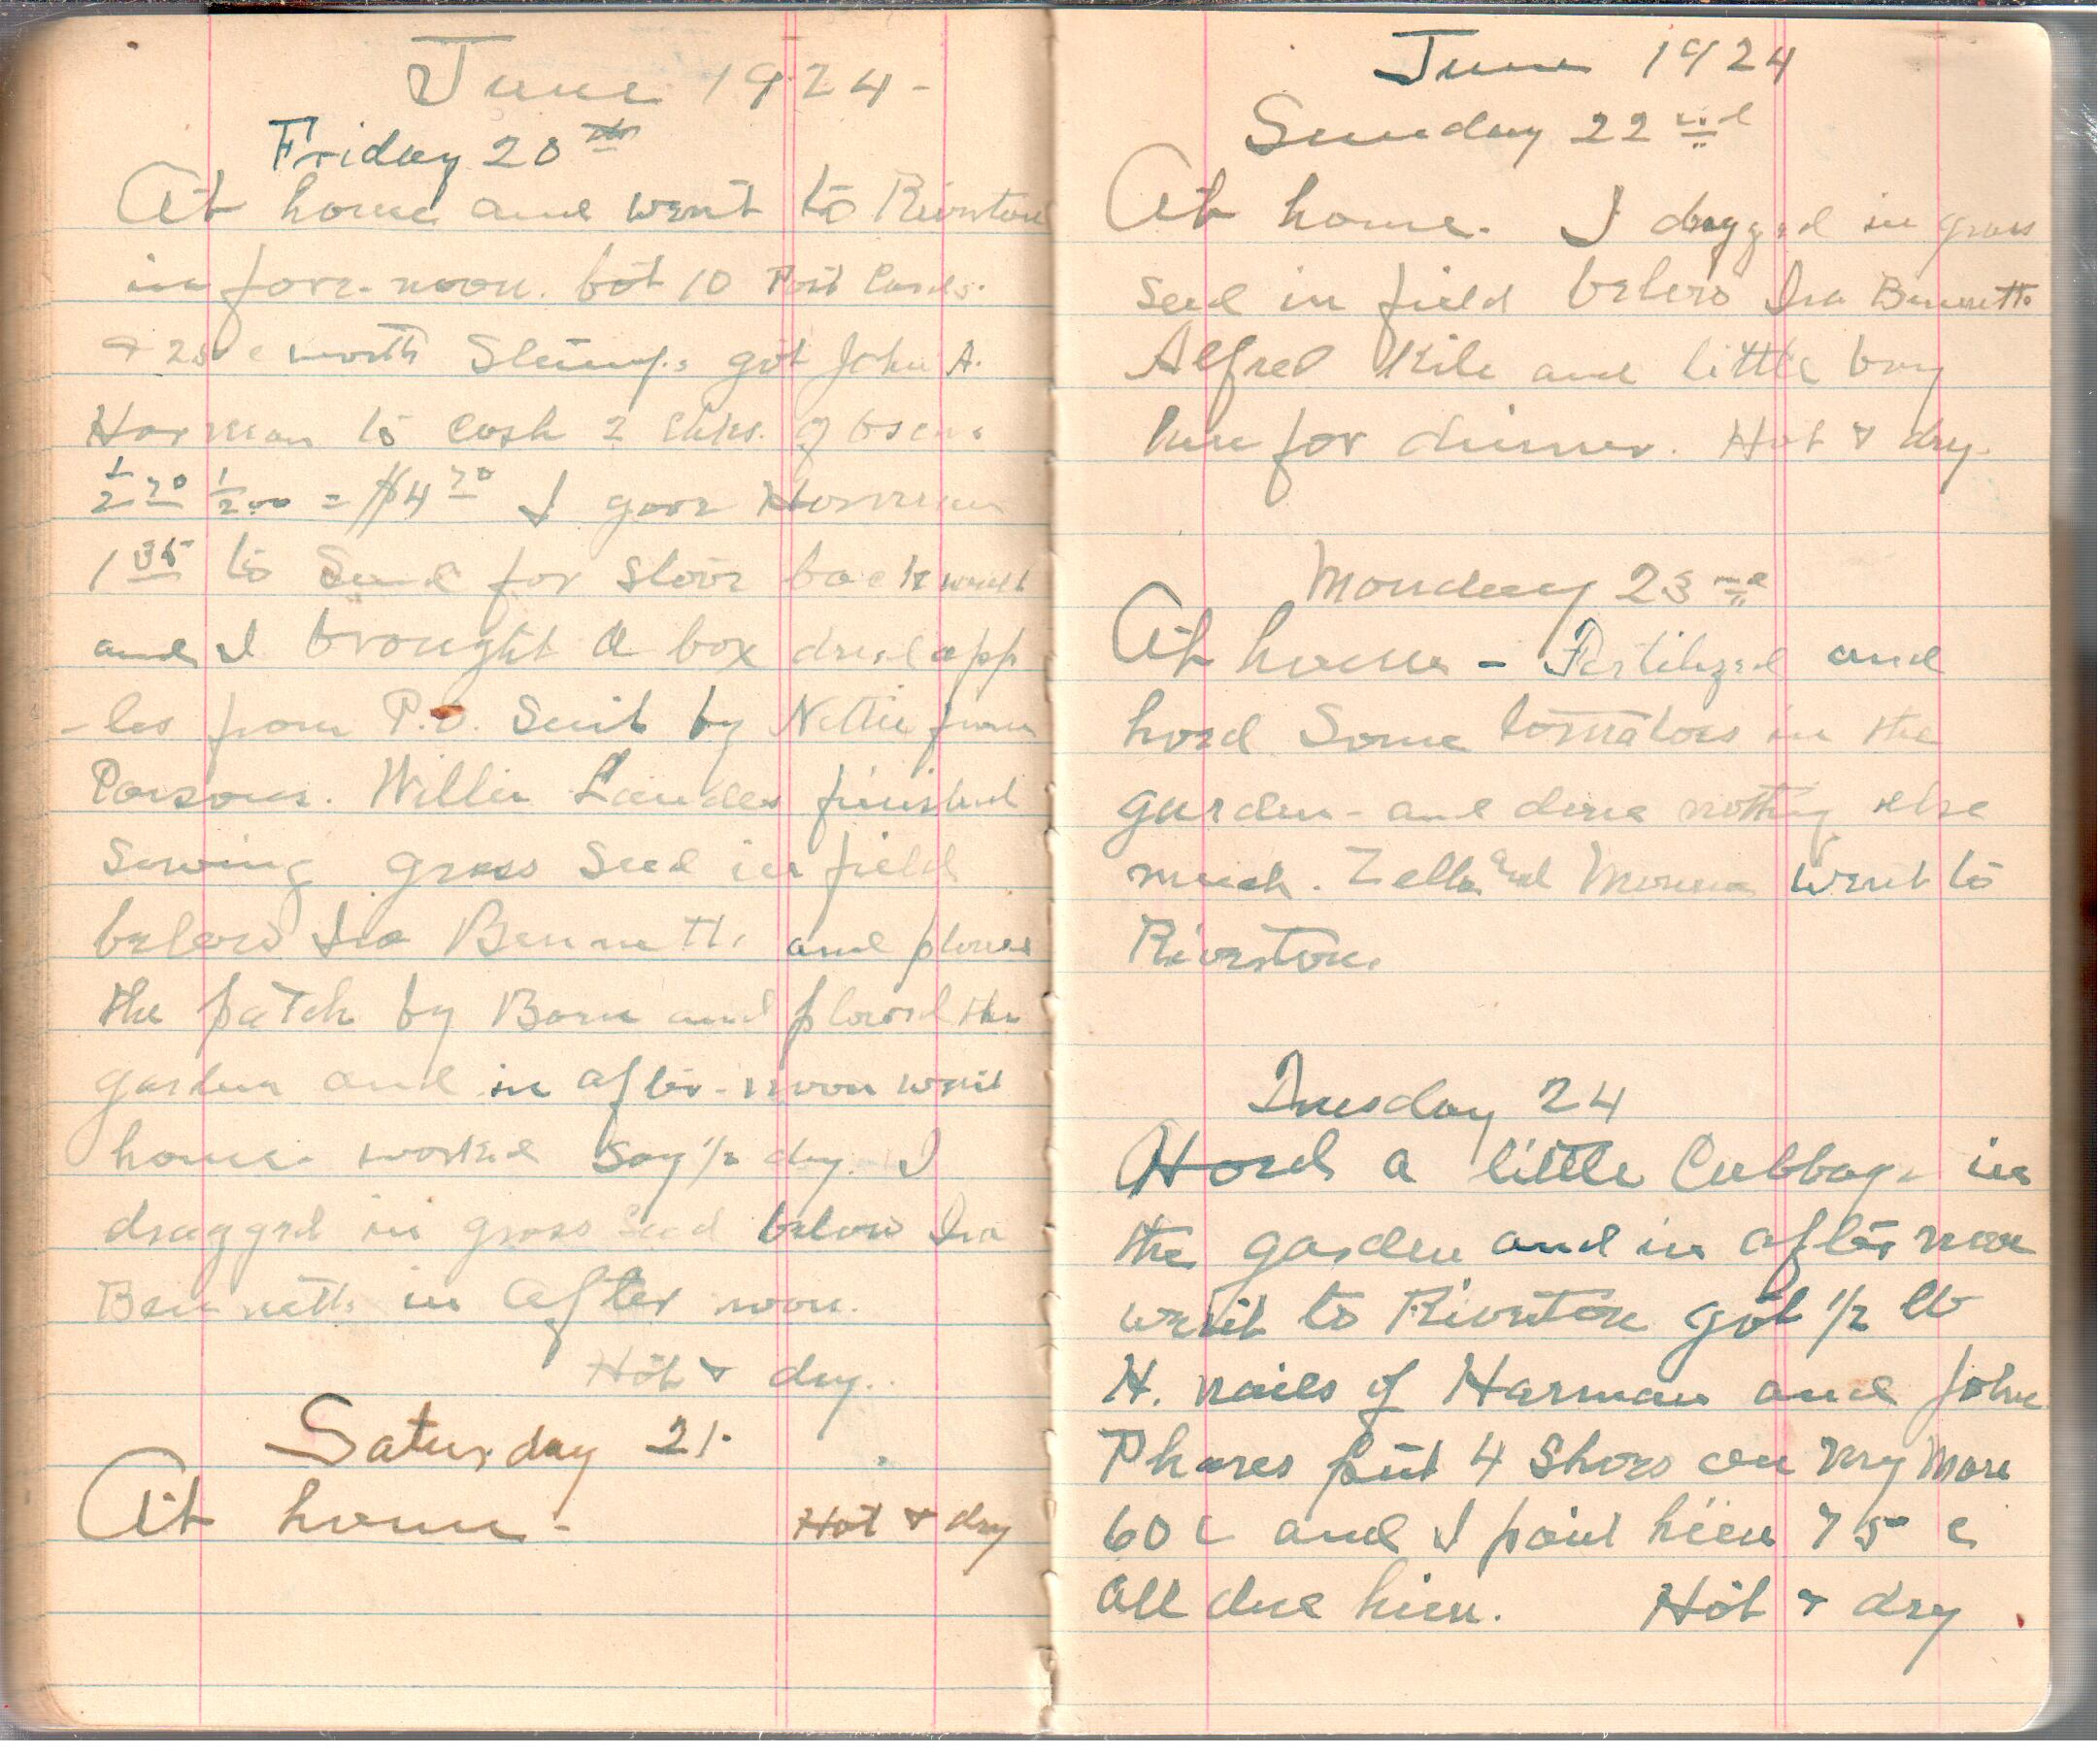 June 1924-
Friday 20th
At home and went to Riverton
in fore-noon. bot 10 Post Cards.
& 25 c worth Stamps got John A.
Harman to cash 2 chks. of
= $4 70 I gave Harman
1 35 to Send for Stove back wall
and I brought a box dried app
-les from P.O. Sent by Nettie from
Parsons. Willie Landes finished
Sowing grass Seed in field
below Ira Bennetts and plowed
the patch by Barn and plowed the
garden and in after-noon went
home worked Say 1/2 day. I
dragged in grass Seed below Ira
Bennetts in after noon.
Hot & dry.
Saturday 21.
At home - Hot & dry
June 1924
Sunday 22nd
At home. I dragged in grass
Seed in field below Ira Bennetts
Alfred Kile and little boy
here for dinner. Hot & dry.
Monday 23rd
At home - Fertilized and
hoed Some tomatoes in the
garden - and done nothing else
much. Zella and went to
Riverton.
Tuesday 24
Hoed a little Cabbage in
the garden and in after noon
went to Riverton got 1/2 lb
H. nails of Harman and John
Phares put 4 Shoes on my Mare
60 c and I paid him 75 c
all due him. Hot & dry